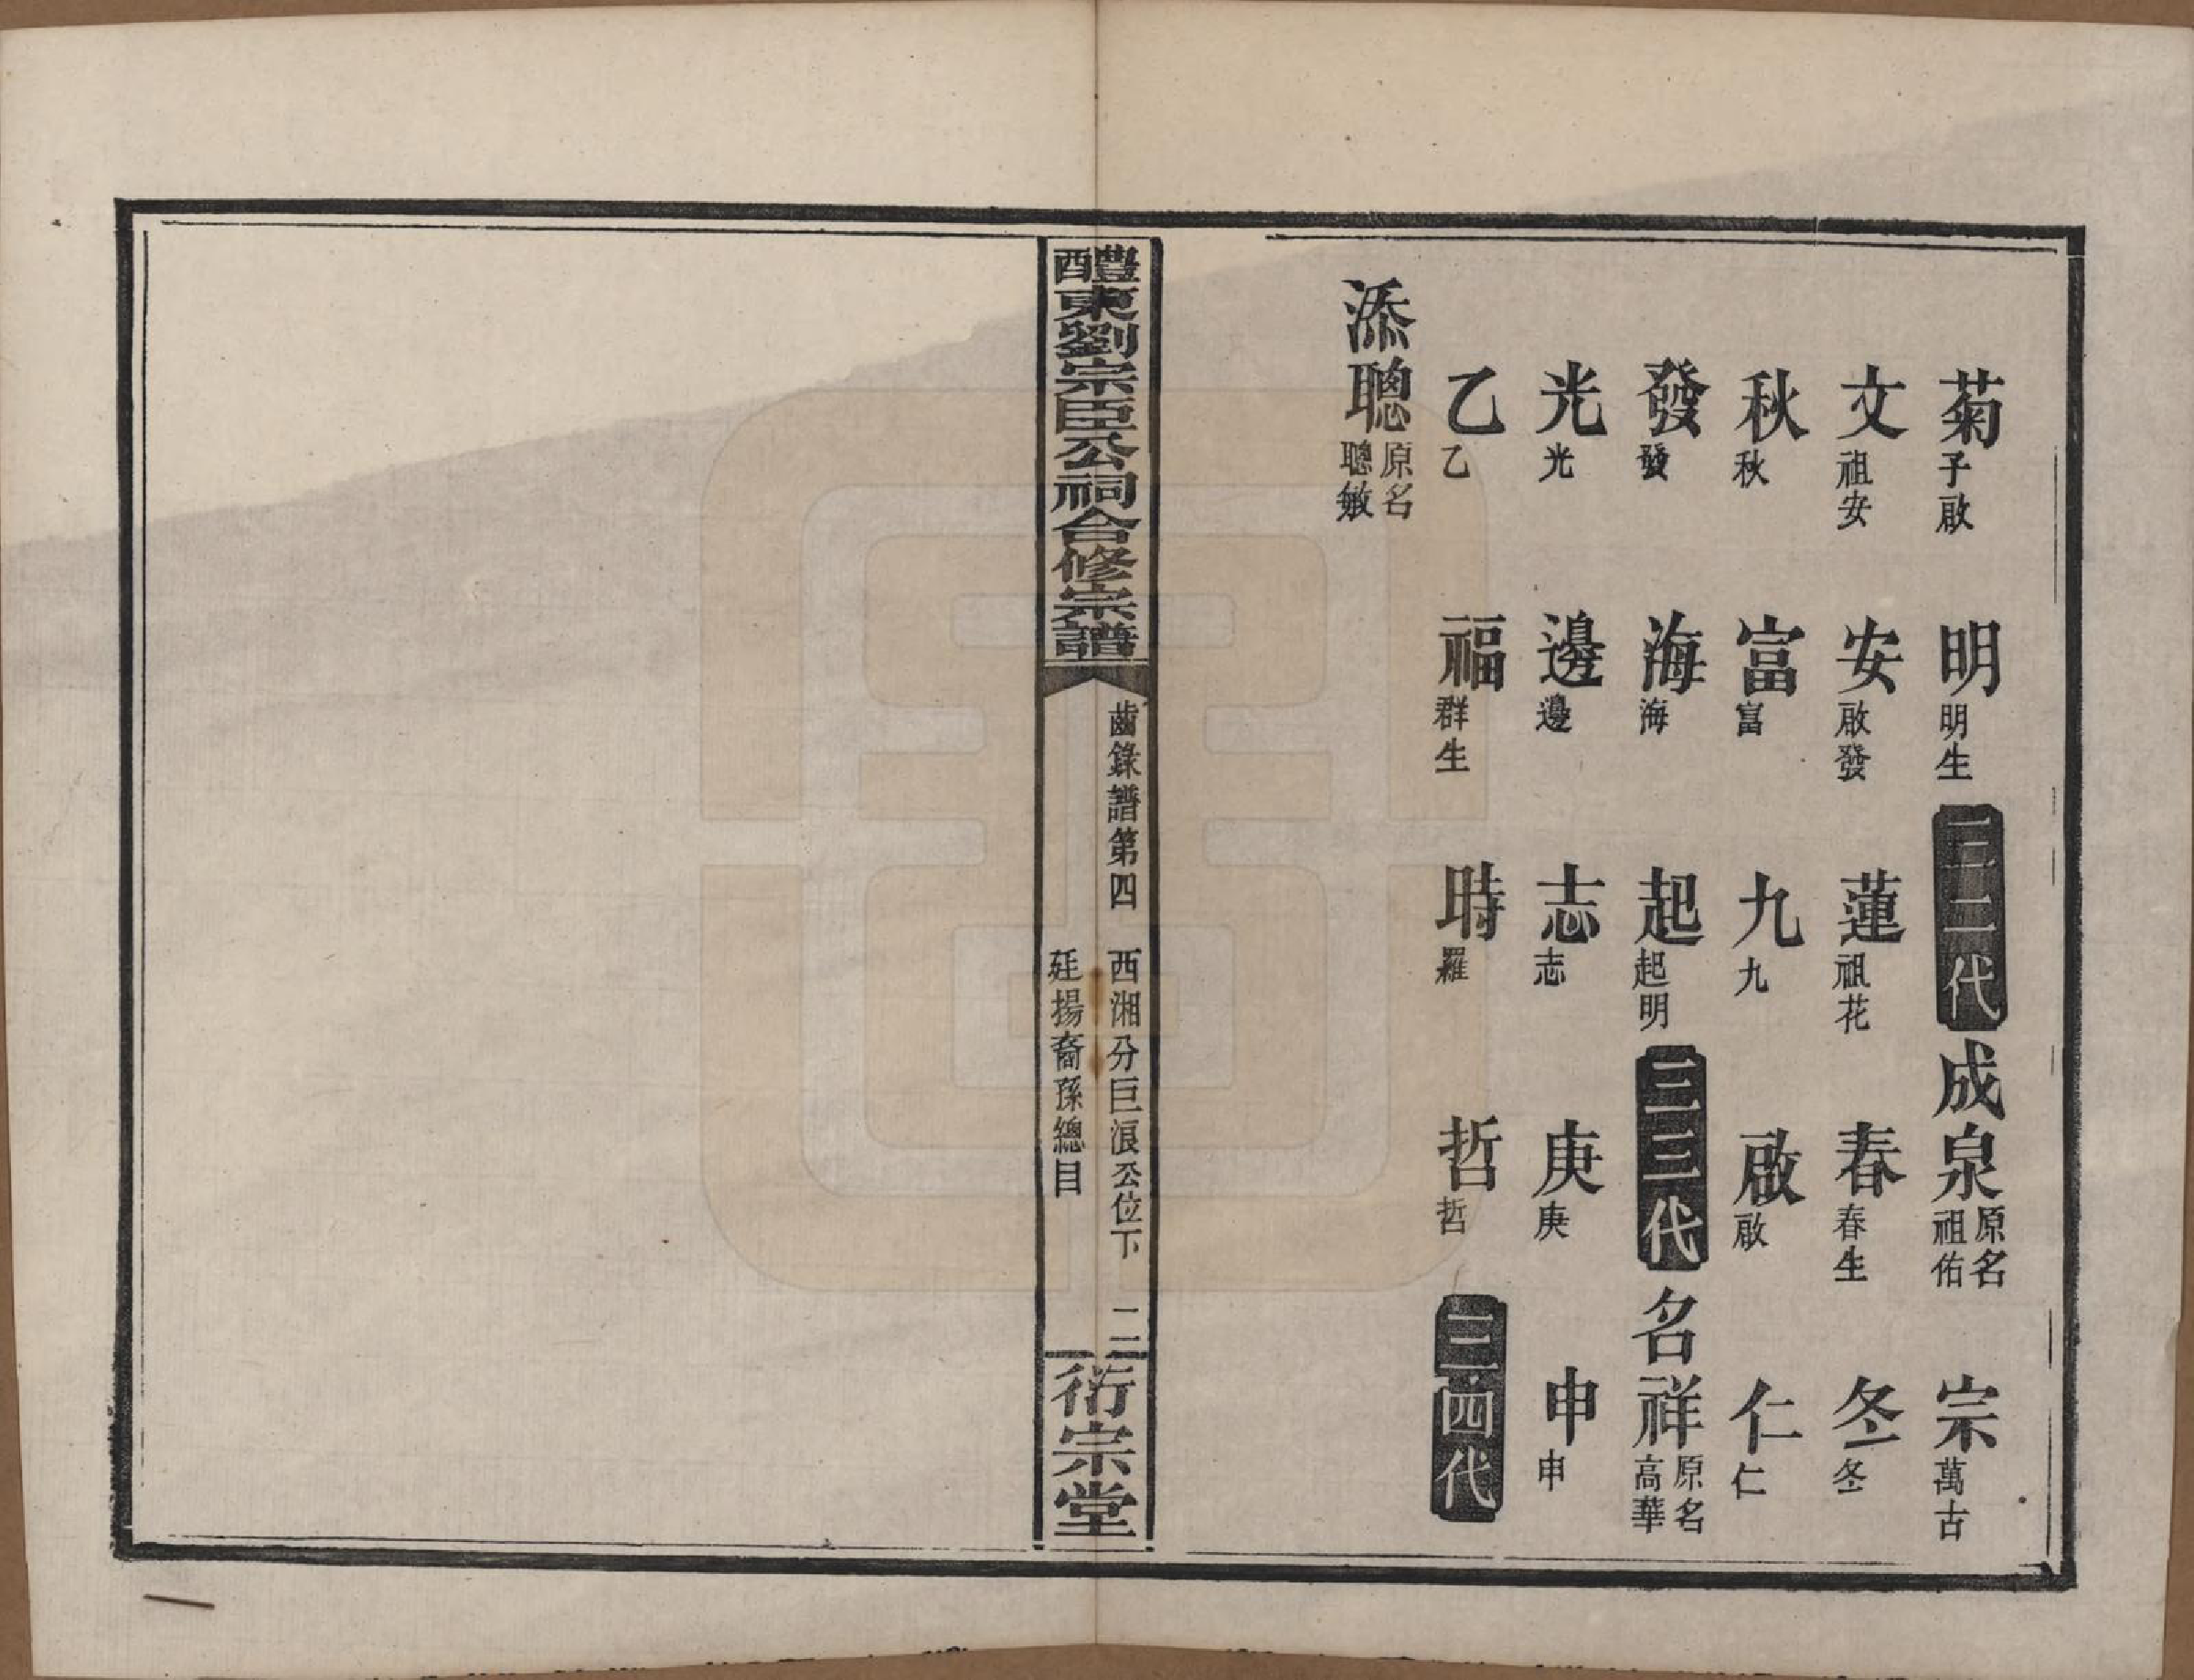 菊 子啟 明 明生 三二代 成泉 原名祖佑 宗 萬古
文 祖安 安 啟發 蓮 祖花 春 春生 冬 冬
秋 秋 富 富 九 九 啟 啟 仁 仁
發 發 海 海 起 起明 三三代 名祥 原名高華
光 光 邊 邊 志 志 庚 庚 申 申
乙 乙 福 群生 時 羅 哲 哲 三四代
添聰 原名聰敏
醴東劉宗臣公祠合修宗譜
齒錄譜第四 西湘分巨浪公位下 二
廷揚裔孫總目
衍宗堂